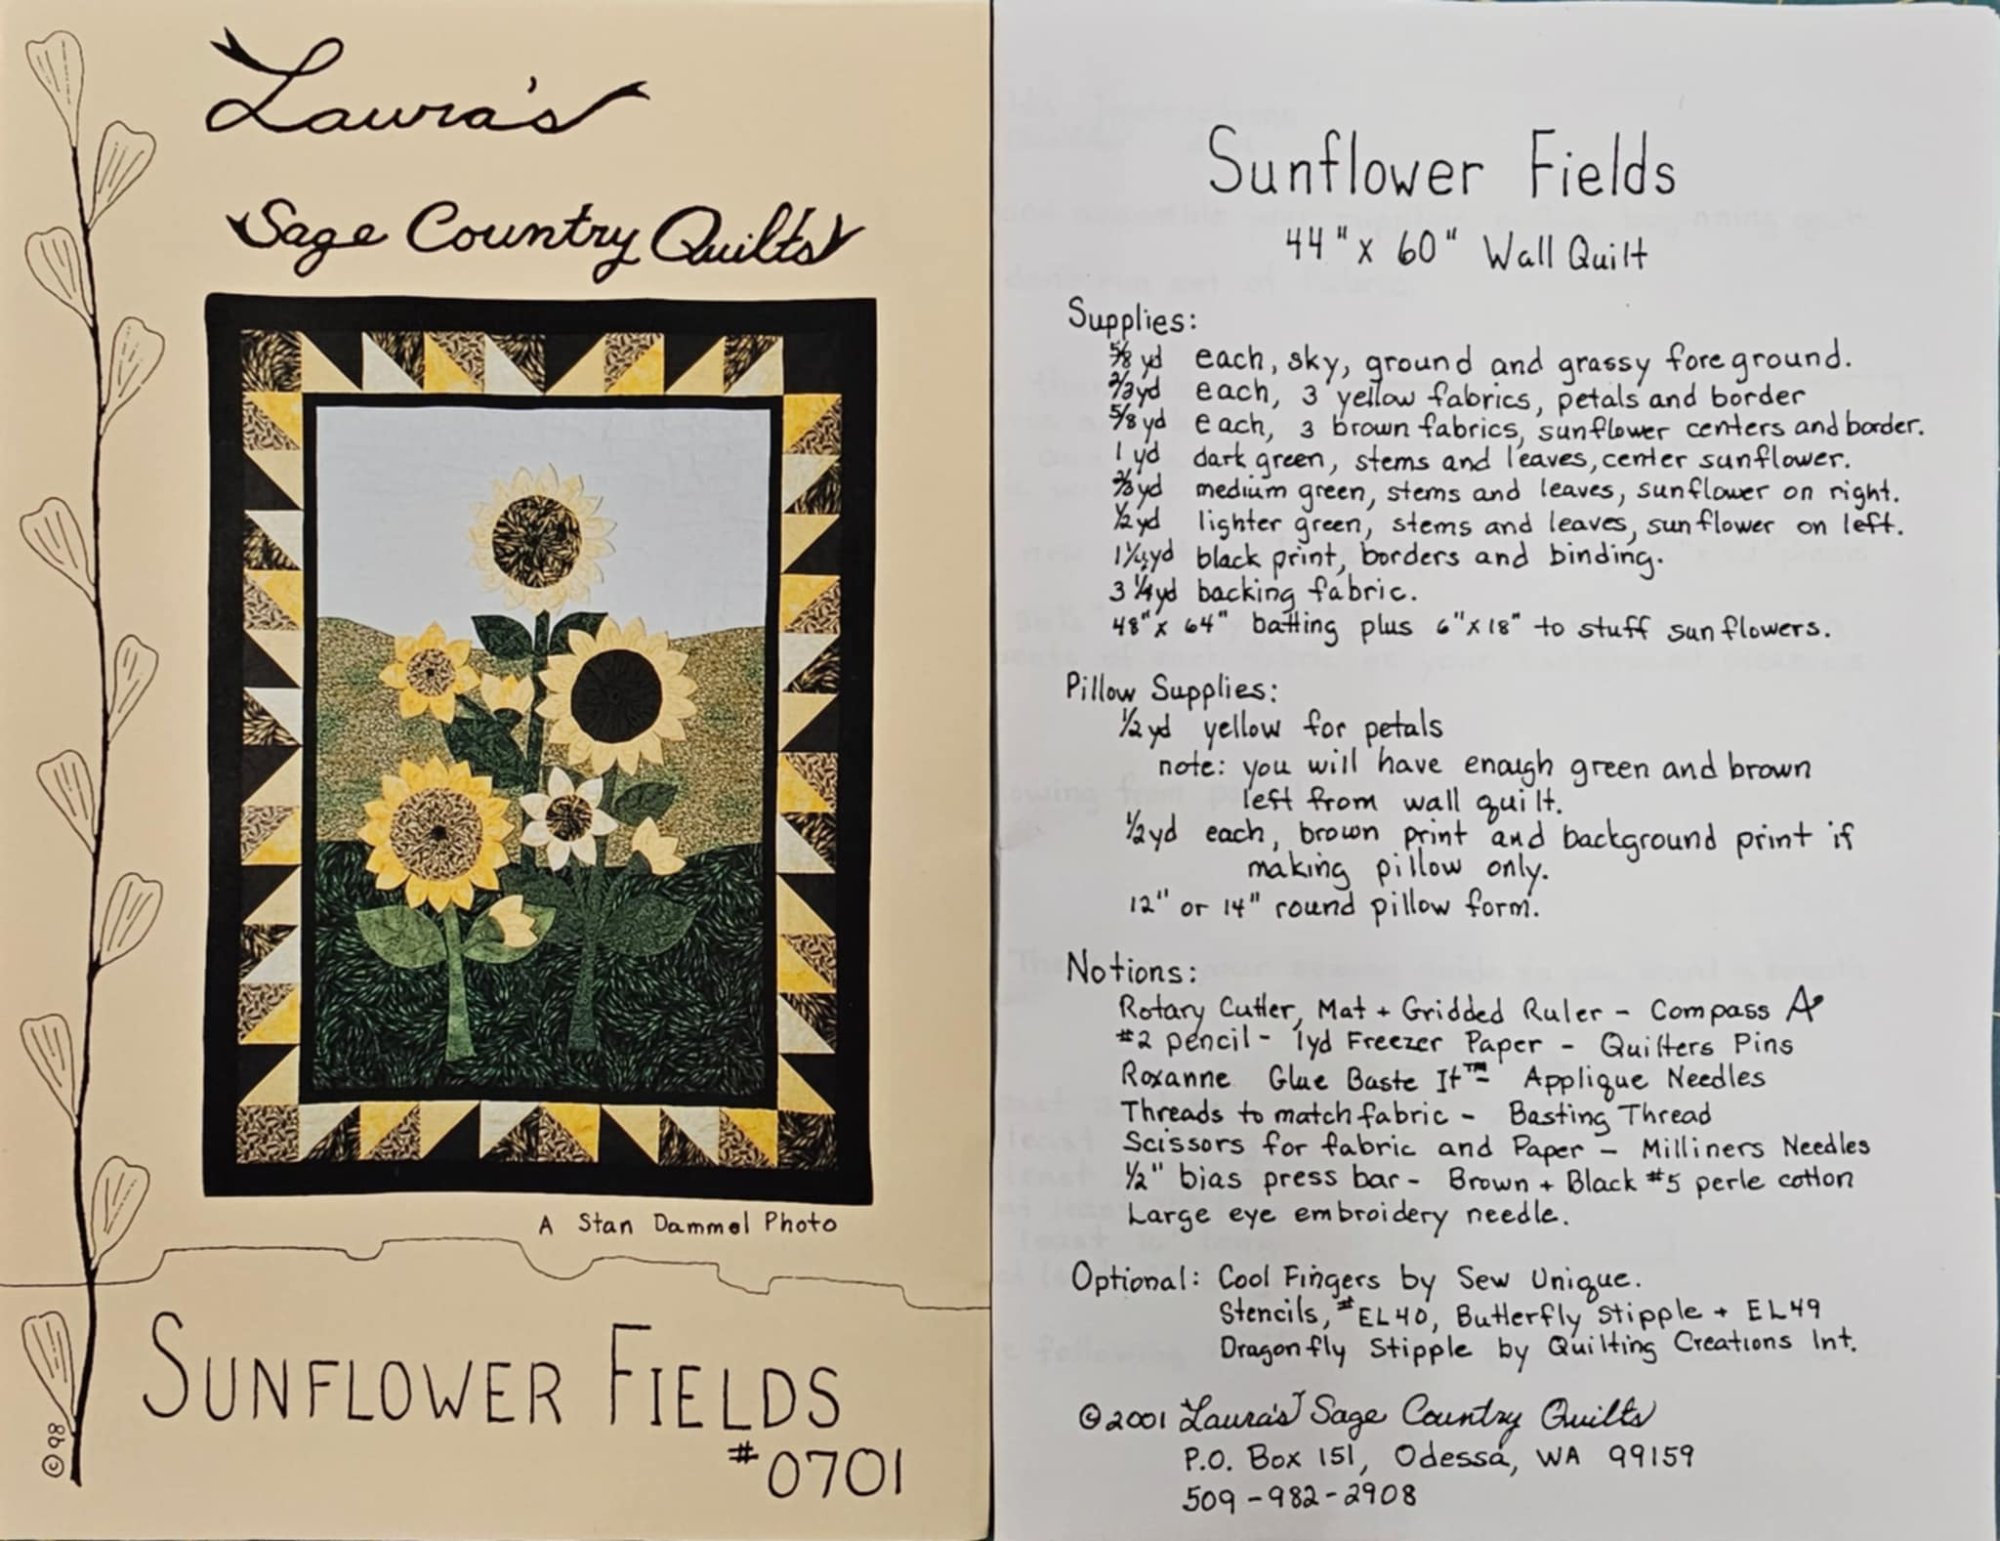 Laura's
Sage Country Quilts
A Stan Dammel Photo
SUNFLOWER FIELDS
#0701
©98
Sunflower Fields
44" x 60" Wall Quilt
Supplies:
5/8 yd each, sky, ground and grassy foreground.
2/3 yd each, 3 yellow fabrics, petals and border
5/8 yd each, 3 brown fabrics, sunflower centers and border.
1 yd dark green, stems and leaves, center sunflower.
2/3 yd medium green, stems and leaves, sunflower on right.
1/2 yd lighter green, stems and leaves, sunflower on left.
yd black print, borders and binding.
3 1/4 yd backing fabric.
48" x 64" batting plus 6" x 18" to stuff sunflowers.
Pillow Supplies:
1/2 yd yellow for petals
note: you will have enough green and brown
left from wall quilt.
1/2 yd each, brown print and background print if
making pillow only.
12" or 14" round pillow form.
Notions:
Rotary Cutter, Mat + Gridded Ruler - Compass
#2 pencil - 1yd Freezer Paper - Quilters Pins
Roxanne Glue Baste It™ - Applique Needles
Threads to match fabric - Basting Thread
Scissors for fabric and Paper - Milliners Needles
1/2" bias press bar - Brown + Black #5 perle cotton
Large eye embroidery needle.
Optional: Cool Fingers by Sew Unique.
Stencils, #EL40, Butterfly Stipple + EL49
Dragonfly Stipple by Quilting Creations Int.
©2001 Laura's Sage Country Quilts
P.O. Box 151, Odessa, WA 99159
509-982-2908